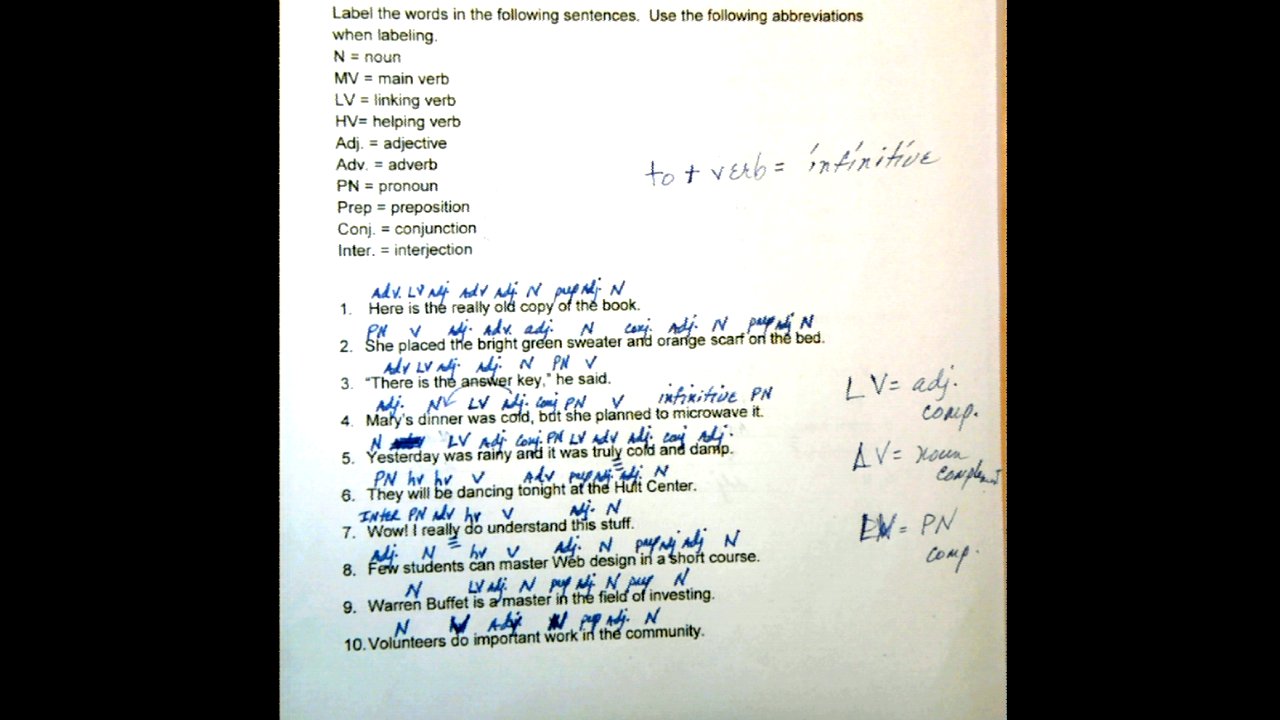 Label the words in the following sentences. Use the following abbreviations
when labeling.
N = noun
MV = main verb
LV = linking verb
HV= helping verb
Adj. = adjective
Adv. = adverb
to + verb = infinitive
PN = pronoun
Prep = preposition
Conj. = conjunction
Inter. = interjection
Adv. LV Adj. Adv Adj. N prep Adj. N
1. Here is the really old copy of the book.
PN V Adj. Adv. adj. N conj. Adj. N prep Adj N
2. She placed the bright green sweater and orange scarf on the bed.
Adv LV Adj. Adj. N PN V
3. "There is the answer key," he said.
Adj. N LV Adj. conj PN V infinitive PN
LV= adj. comp.
4. Mary's dinner was cold, but she planned to microwave it.
N LV Adj conj. PN LV Adv Adj. conj Adj.
5. Yesterday was rainy and it was truly cold and damp.
V= noun
PN hv hv V Adv prep Adj. Adj. N
6. They will be dancing tonight at the Hult Center.
Inter PN Adv hv V Adj. N
7. Wow! I really do understand this stuff.
= PN comp.
Adj. N hv V Adj. N prep Adj Adj N
8. Few students can master Web design in a short course.
N LV Adj. N prep Adj N prep N
9. Warren Buffet is a master in the field of investing.
N V Adj N prep Adj. N
10. Volunteers do important work in the community.